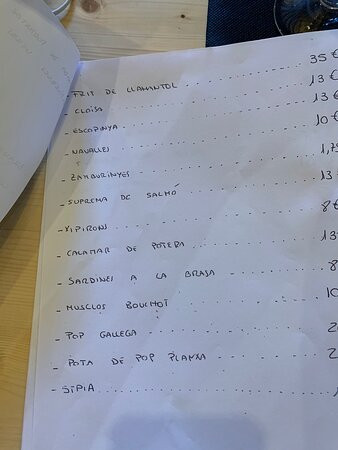 - FRIT DE LLAMANTOL 35 €
- CLOÏSA 13 €
- ESCOPINYA 13 €
- NAVALLES 10 €
- ZAMBURINYES 1,7
- SUPREMA DE SALMÓ 13
- XIPIRONS 8 €
- CALAMAR DE POTERA 13
- SARDINES A LA BRASA 8
- MUSCLOS BOUCHOT 10
- POP GALLEGA 2
- POTA DE POP PLANXA 2
- SÍPIA 1